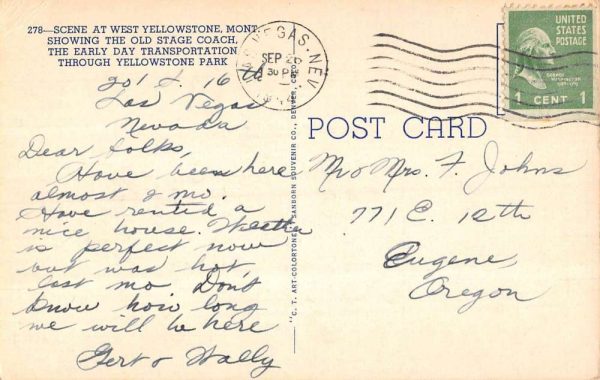 278—SCENE AT WEST YELLOWSTONE, MONT.
SHOWING THE OLD STAGE COACH,
THE EARLY DAY TRANSPORTATION
THROUGH YELLOWSTONE PARK
201 S. 16th
Las Vegas
Nevada
Dear folks,
Have been here
almost 2 mo.
Have rented a
nice house. Weather
is perfect now
but was hot
last mo Don't
know how long
we will be here
Gert & Wally
"C. T. ART-COLORTONE" SANBORN SOUVENIR CO., DENVER, COLO.
VEGAS, NEV
SEP 26
30 PM
UNITED
STATES
POSTAGE
1 CENT 1
POST CARD
Mr & Mrs. F. Johns
771 E. 12th
Eugene,
Oregon